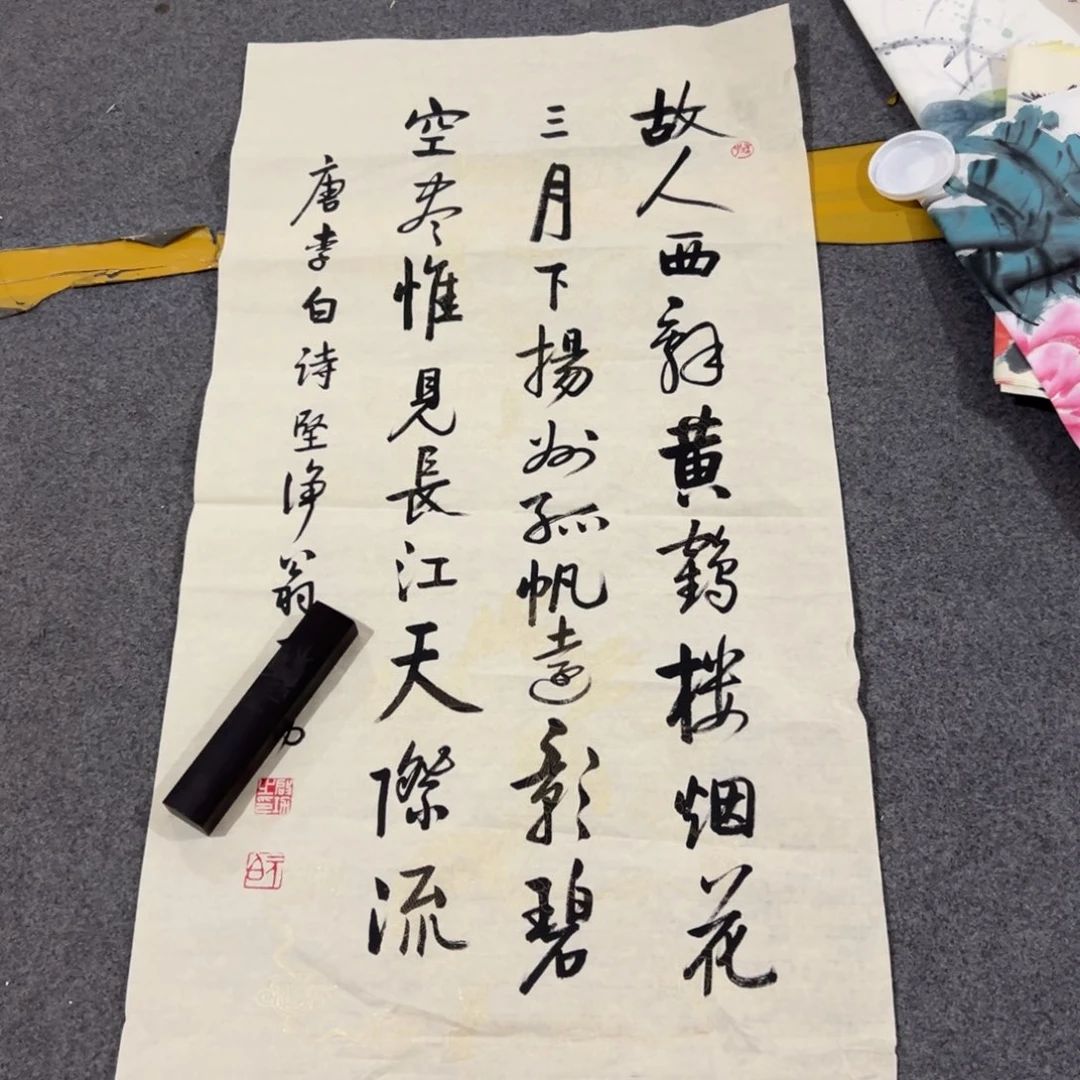 故人西辭黃鶴楼烟花
三月下揚州孤帆遠影碧
空盡惟見長江天際流
唐李白诗堅淨翁